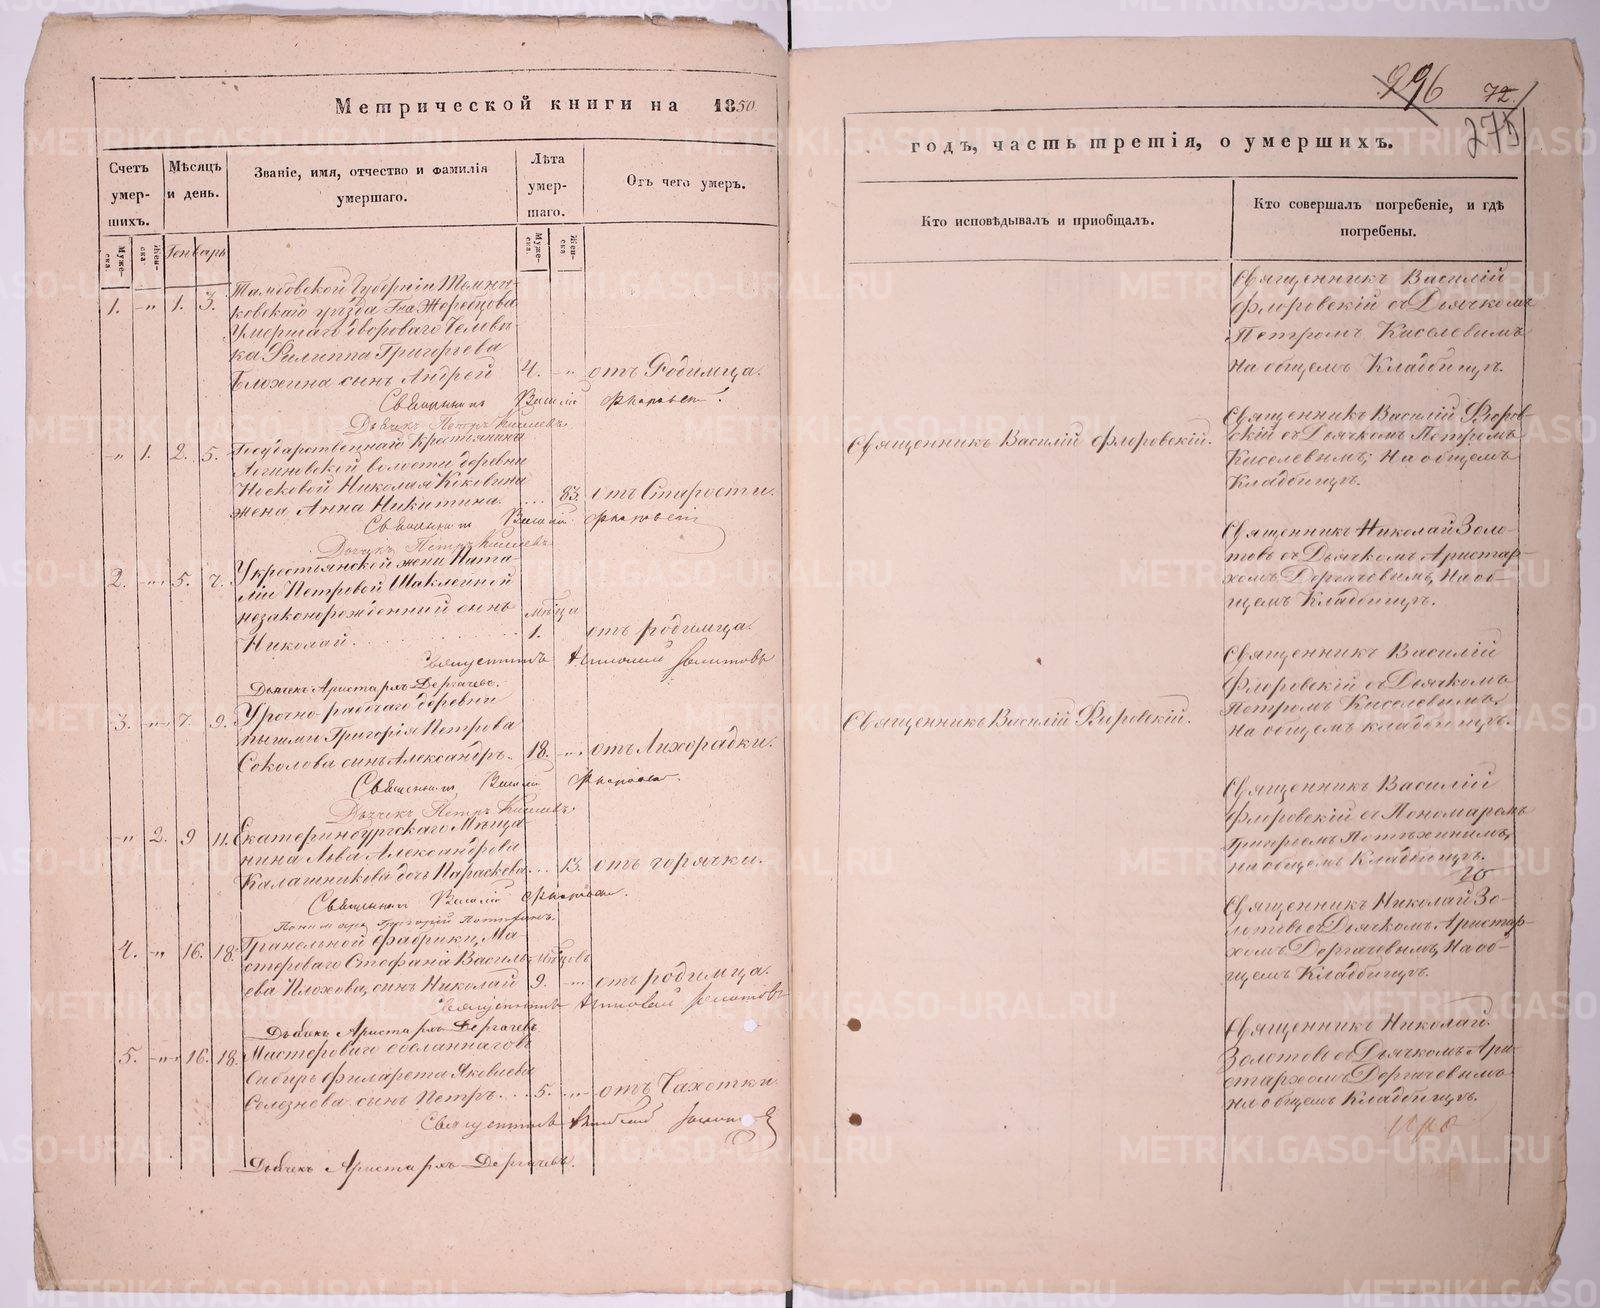 Метрической книги на 1850.
Счетъ умершихъ.
Мѣсяцъ и день.
Званіе, имя, отчество и фамилія умершаго.
Лѣта умершаго.
Отъ чего умеръ.
Генварь
1. -"- 1. 3.
Тамбовской Губерніи Темни-
ковскаго уѣзда Гна Жеребцова
Умершаго двороваго Человѣ-
ка Филиппа Григорьева
сынъ Андрей 4. -"- отъ Родимца.
Священникъ Василій Флоровскій.
Дьячекъ Петръ Киселевъ.
-"- 1. 2. 5.
Государственнаго Крестьянина
волости деревни
Носковой Николая
жена Анна Никитина. 83. отъ Старости.
Священникъ Василій Флоровскій
Дьячекъ Петръ Киселевъ
2. -"- 5. 7.
У крестьянской жени Ната-
ліи Петровой Шаклеиной
незаконорожденний сынъ мѣсяца
Николай. 1. отъ родимца.
Священникъ Николай Золотовъ
Дьячекъ Аристархъ Дергачевъ.
3. -"- 7. 9.
Урочно рабочаго деревни
Пышми Григорія Петрова
Соколова сынъ Александръ. 18. -"- отъ Лихорадки.
Священникъ Василій Флоровскій.
Дьячекъ Петръ Киселевъ.
-"- 2. 9 11.
Екатеринбургскаго Мѣща-
нина Льва Александрова
Калашникова дочь Параскева... 13. отъ горячки.
Священникъ Василій Флоровскій.
Пономарь Григорій Потѣхинъ.
4. -"- 16. 18.
Гранильной фабрики, Ма-
стероваго Стефана Василь-
ева Плохова, сынъ Николай 9. -"- отъ родимца.
Священникъ Николай Золотовъ
Дьячекъ Аристархъ Дергачевъ
5. -"- 16. 18.
Мастероваго
Сибирь Филарета Яковлева
Селезнева сынъ Петръ... 5. -"- отъ Чахотки
Священникъ Николай Золотовъ
Дьячекъ Аристархъ Дергачевъ.
296 72
275
годъ, часть третія, о умершихъ.
Кто исповѣдывалъ и приобщалъ.
Кто совершалъ погребеніе, и гдѣ погребены.
Священникъ Василій
Флоровскій съ Дьячкомъ
Петромъ Киселевымъ
На общемъ Кладбищѣ.
Священникъ Василій Флоровскій.
Священникъ Василій Флоров-
скій съ Дьячкомъ Петромъ
Киселевымъ; На общемъ
Кладбищѣ.
Священникъ Николай Золо-
товъ съ Дьячкомъ Аристар-
хомъ Дергачевымъ, На об-
щемъ Кладбищѣ.
Священникъ Василій Флоровскій.
Священникъ Василій
Флоровскій съ Дьячкомъ
Петромъ Киселевымъ,
На общемъ кладбищѣ.
Священникъ Василій
Флоровскій съ Пономаремъ
Григорьемъ Потѣхинымъ,
на общемъ Кладбищѣ.
Священникъ Николай Зо-
лотовъ съ Дьячкомъ Аристар-
хомъ Дергачевымъ, На об-
щемъ Кладбищѣ.
Священникъ Николай
Золотовъ съ Дьячкомъ Ари-
стархомъ Дергачевымъ
на общемъ Кладбищѣ.
METRIKI.GASO-URAL.RU